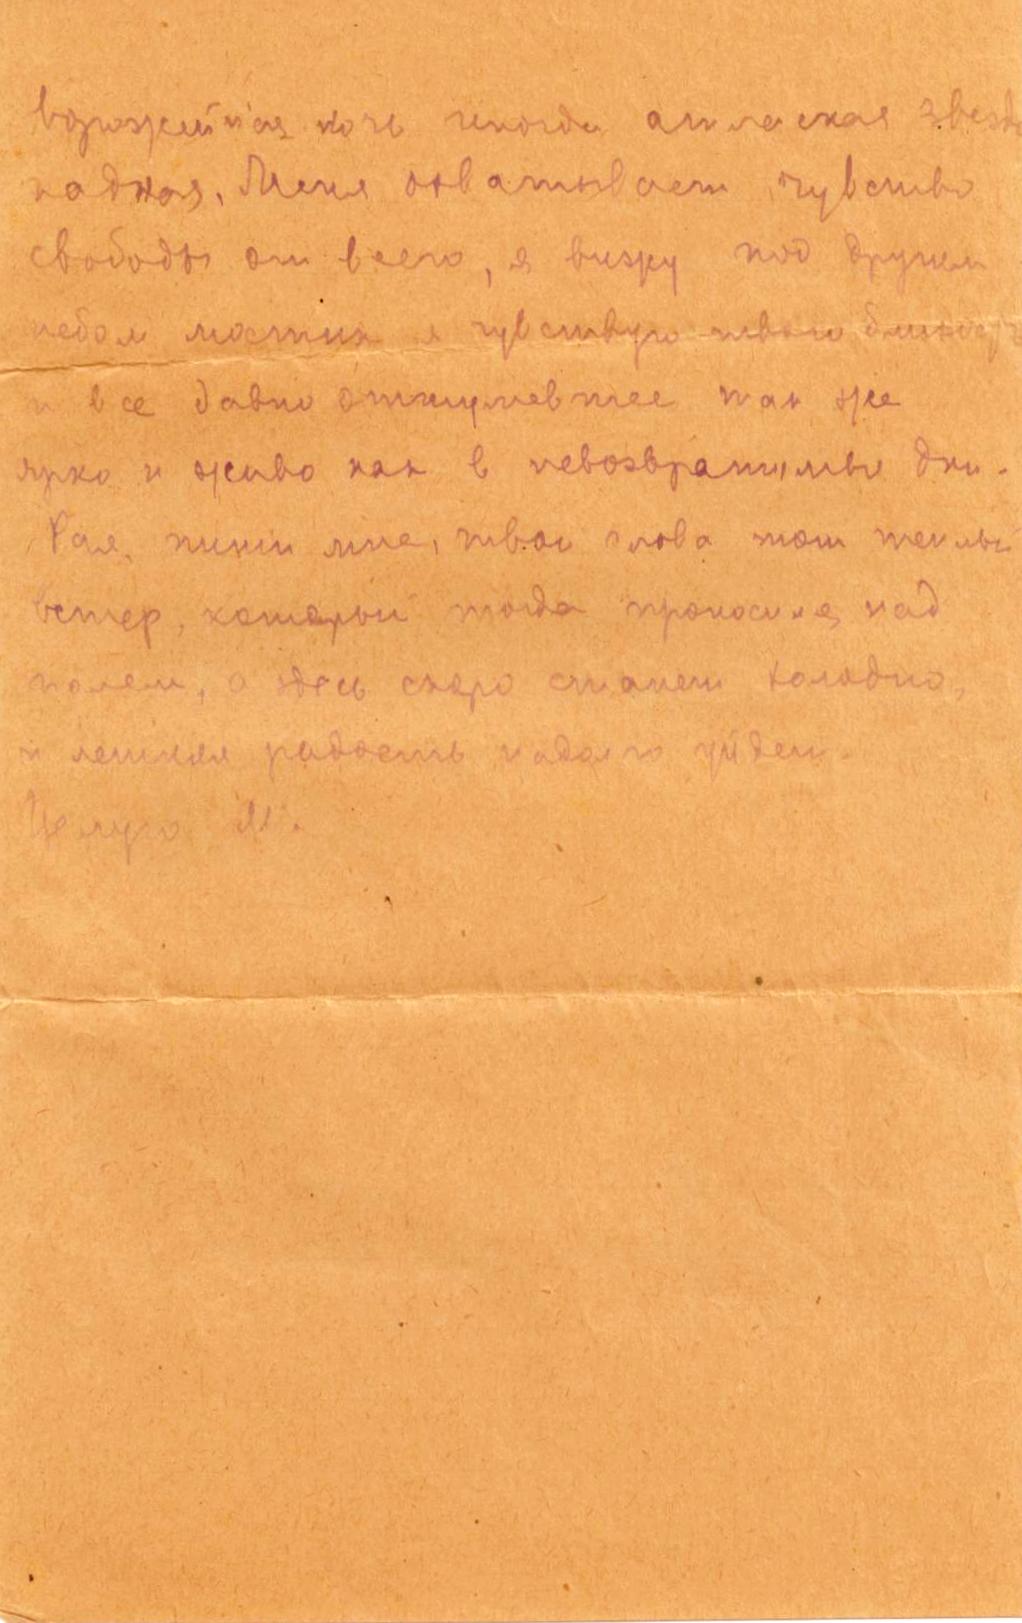 ночь иногда звезда
падная. Меня охватывает чувство
свободы от всего, я вижу под другим
небом мостик и чувствую твою близость
и все давно отшумевшее так же
ярко и живо как в невозвратимые дни.
Рая, пиши мне, твои слова тот теплый
ветер, который тогда проносился над
полем, а здесь скоро станет холодно,
и летняя радость надолго уйдет.
Целую М.